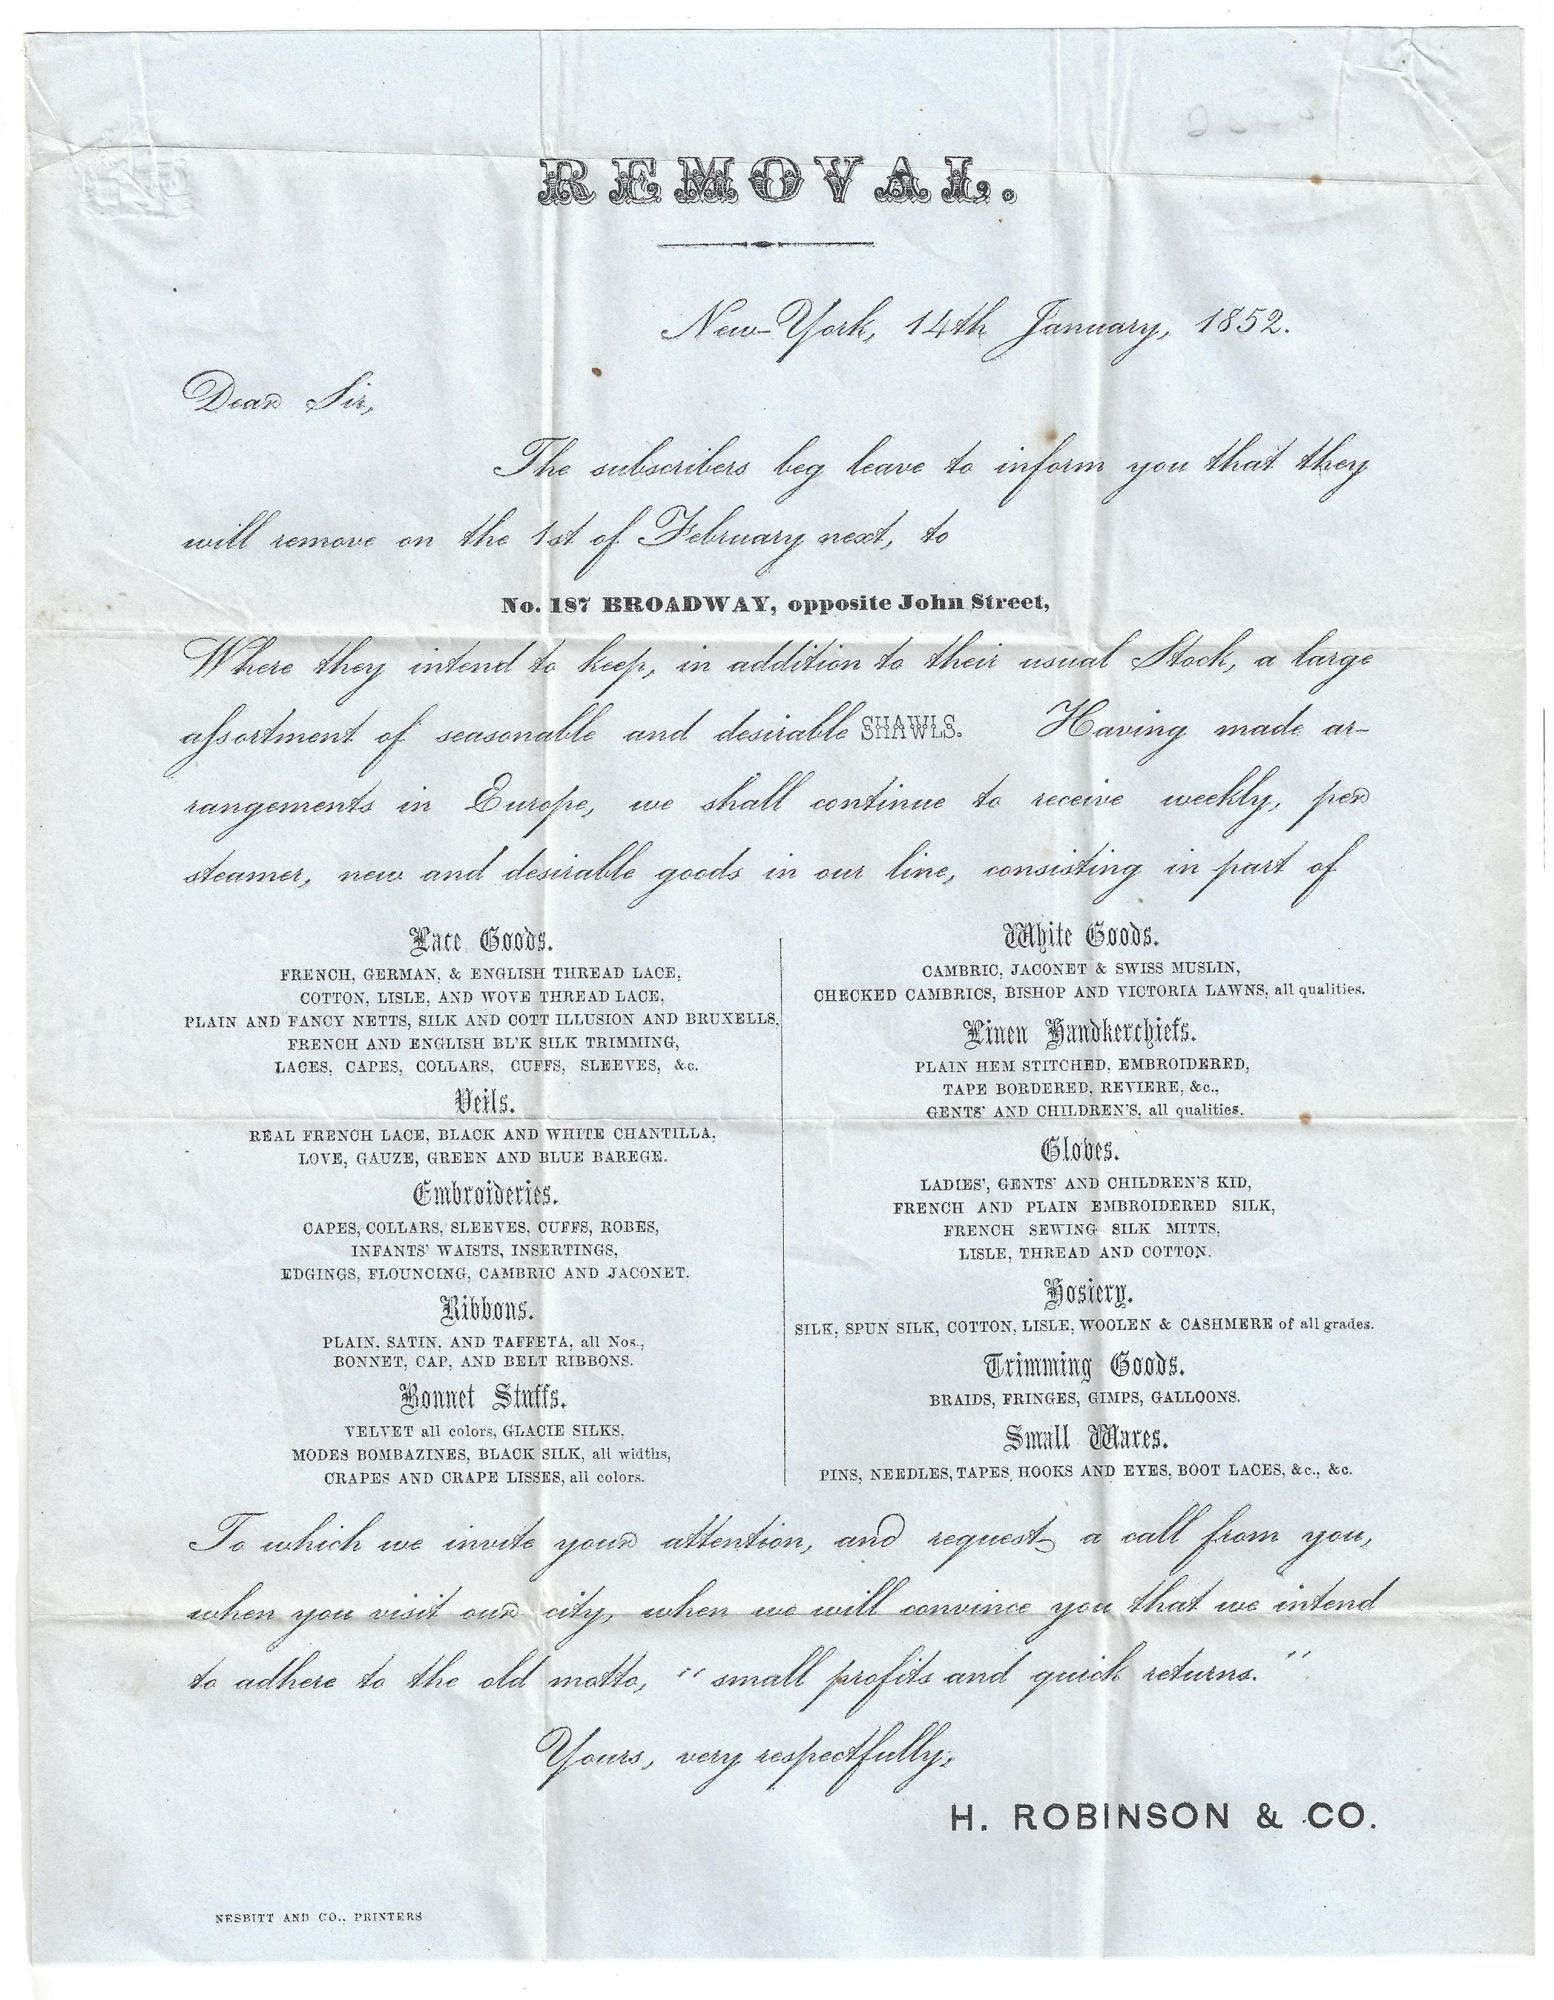 REMOVAL.
New-York, 14th January, 1852.
Dear Sir,
The subscribers beg leave to inform you that they
will remove on the 1st of February next, to
No. 187 BROADWAY, opposite John Street,
Where they intend to keep, in addition to their usual Stock, a large
aſsortment of seasonable and desirable SHAWLS. Having made ar-
rangements in Europe, we shall continue to receive weekly, per
steamer, new and desirable goods in our line, consisting in part of
Lace Goods.
FRENCH, GERMAN, & ENGLISH THREAD LACE,
COTTON, LISLE, AND WOVE THREAD LACE,
PLAIN AND FANCY NETTS, SILK AND COTT ILLUSION AND BRUXELLS,
FRENCH AND ENGLISH BL'K SILK TRIMMING,
LACES, CAPES, COLLARS, CUFFS, SLEEVES, &c.
Veils.
REAL FRENCH LACE, BLACK AND WHITE CHANTILLA,
LOVE, GAUZE, GREEN AND BLUE BAREGE.
Embroideries.
CAPES, COLLARS, SLEEVES, CUFFS, ROBES,
INFANTS' WAISTS, INSERTINGS,
EDGINGS, FLOUNCING, CAMBRIC AND JACONET.
Ribbons.
PLAIN, SATIN, AND TAFFETA, all Nos.,
BONNET, CAP, AND BELT RIBBONS.
Bonnet Stuffs.
VELVET all colors, GLACIE SILKS,
MODES BOMBAZINES, BLACK SILK, all widths,
CRAPES AND CRAPE LISSES, all colors.
White Goods.
CAMBRIC, JACONET & SWISS MUSLIN,
CHECKED CAMBRICS, BISHOP AND VICTORIA LAWNS, all qualities.
Linen Handkerchiefs.
PLAIN HEM STITCHED, EMBROIDERED,
TAPE BORDERED, REVIERE, &c.,
GENTS' AND CHILDREN'S, all qualities.
Gloves.
LADIES', GENTS' AND CHILDREN'S KID,
FRENCH AND PLAIN EMBROIDERED SILK,
FRENCH SEWING SILK MITTS,
LISLE, THREAD AND COTTON.
Hosiery.
SILK, SPUN SILK, COTTON, LISLE, WOOLEN & CASHMERE of all grades.
Trimming Goods.
BRAIDS, FRINGES, GIMPS, GALLOONS.
Small Wares.
PINS, NEEDLES, TAPES, HOOKS AND EYES, BOOT LACES, &c., &c.
To which we invite your attention, and request a call from you,
when you visit our city, when we will convince you that we intend
to adhere to the old motto, "small profits and quick returns."
Yours, very respectfully,
H. ROBINSON & CO.
NESBITT AND CO., PRINTERS